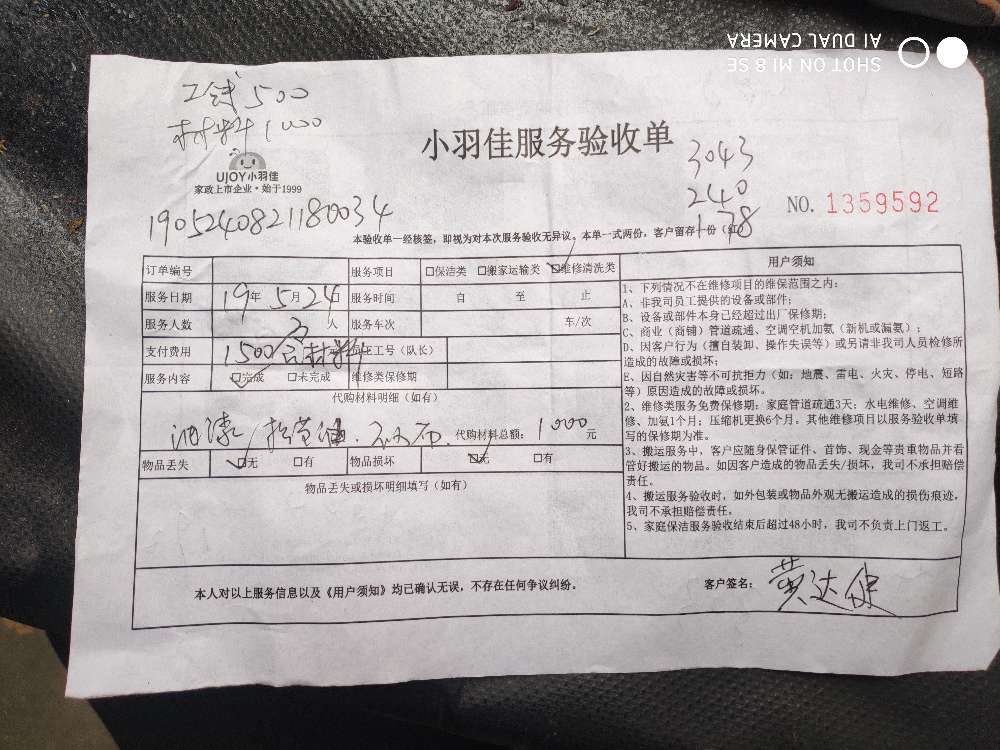 SHOT ON MI 8 SE
AI DUAL CAMERA
工钱500
材料1000
UJOY小羽佳
家政上市企业·始于1999
小羽佳服务验收单
3043
240
178
NO. 1359592
1905240821180034
本验收单一经核签，即视为对本次服务验收无异议。本单一式两份，客户留存一份（红）
订单编号 服务项目 □保洁类 □搬家运输类 ☑维修清洗类
服务日期 19年5月24日 服务时间 自 至 止
服务人数 人 服务车次 车/次
支付费用 1500含材料 员工工号（队长）
服务内容 ☑完成 □未完成 维修类保修期
代购材料明细（如有）
油漆 代购材料总额：1000元
物品丢失 ☑无 □有 物品损坏 ☑无 □有
物品丢失或损坏明细填写（如有）
用户须知
1、下列情况不在维修项目的维保范围之内：
A、非我司员工提供的设备或部件；
B、设备或部件本身已经超过出厂保修期；
C、商业（商铺）管道疏通、空调空机加氨（新机或漏氨）；
D、因客户行为（擅自装卸、操作失误等）或另请非我司人员检修所
造成的故障或损坏；
E、因自然灾害等不可抗拒力（如：地震、雷电、火灾、停电、短路
等）原因造成的故障或损坏。
2、维修类服务免费保修期：家庭管道疏通3天；水电维修、空调维
修、加氨1个月；压缩机更换6个月。其他维修项目以服务验收单填
写的保修期为准。
3、搬运服务中，客户应随身保管证件、首饰、现金等贵重物品并看
管好搬运的物品。如因客户造成的物品丢失/损坏，我司不承担赔偿
责任。
4、搬运服务验收时，如外包装或物品外观无搬运造成的损伤痕迹，
我司不承担赔偿责任。
5、家庭保洁服务验收结束后超过48小时，我司不负责上门返工。
本人对以上服务信息以及《用户须知》均已确认无误，不存在任何争议纠纷。
客户签名：黄达